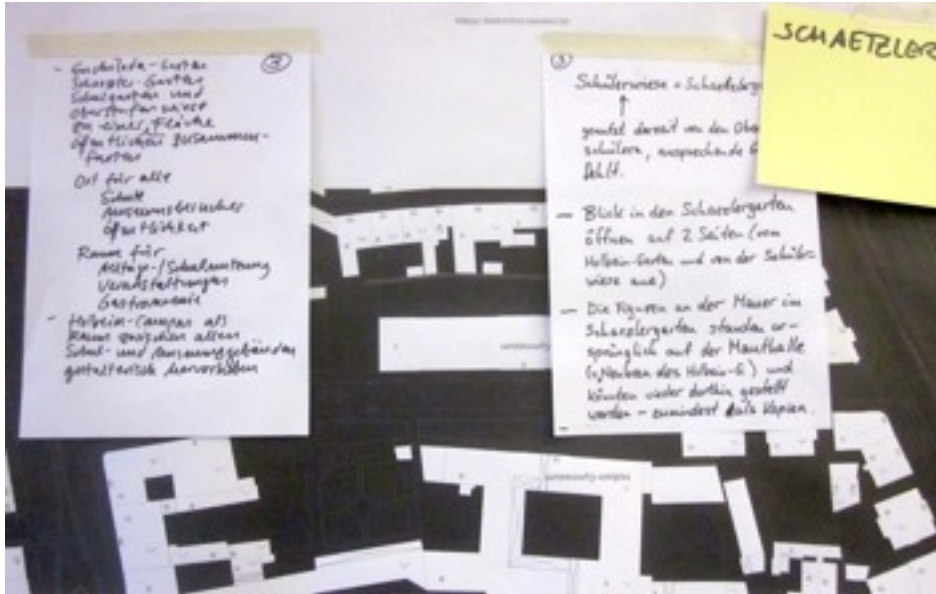 ③
Garten
Schaezler-Garten
Schulgarten und
zu einer Fläche
öffentlichen
Ort für alle
Schule
Museumsbesucher
Öffentlichkeit
Raum für
Alltags-/Schulnutzung
Veranstaltungen
Gastronomie
- Holbein-Campus als
Raum zwischen allen
Schul- und Museumsgebäuden
gestalterisch hervorheben
③
Schülerwiese + Schaezlerg
↑
genutzt derzeit von den Ober
schülern, ansprechende G
fehlt.
— Blick in den Schaezlergarten
öffnen auf 2 Seiten (vom
Holbein-Garten und von der Schüler-
wiese aus)
— Die Figuren an der Mauer im
Schaezlergarten standen ur-
sprünglich auf der Mauthalle
des Holbein-G) und
könnten wieder dorthin gestellt
werden – zumindest als Kopien.
SCHAETZLER